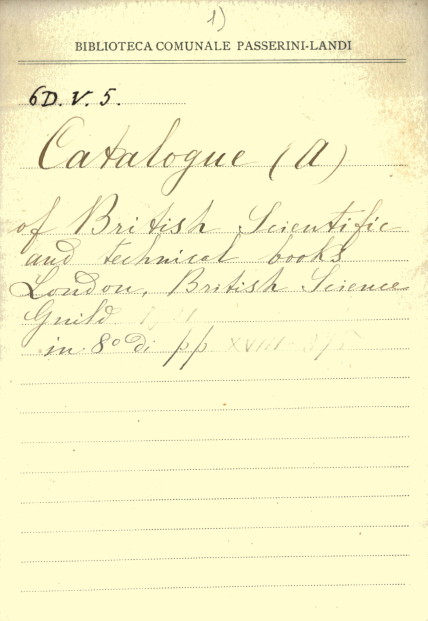 1)
BIBLIOTECA COMUNALE PASSERINI-LANDI
6D. V. 5.
Catalogue (A)
of British Scientific
and technical books
London, British Science
Guild 1921
in 8° di pp XVIII-